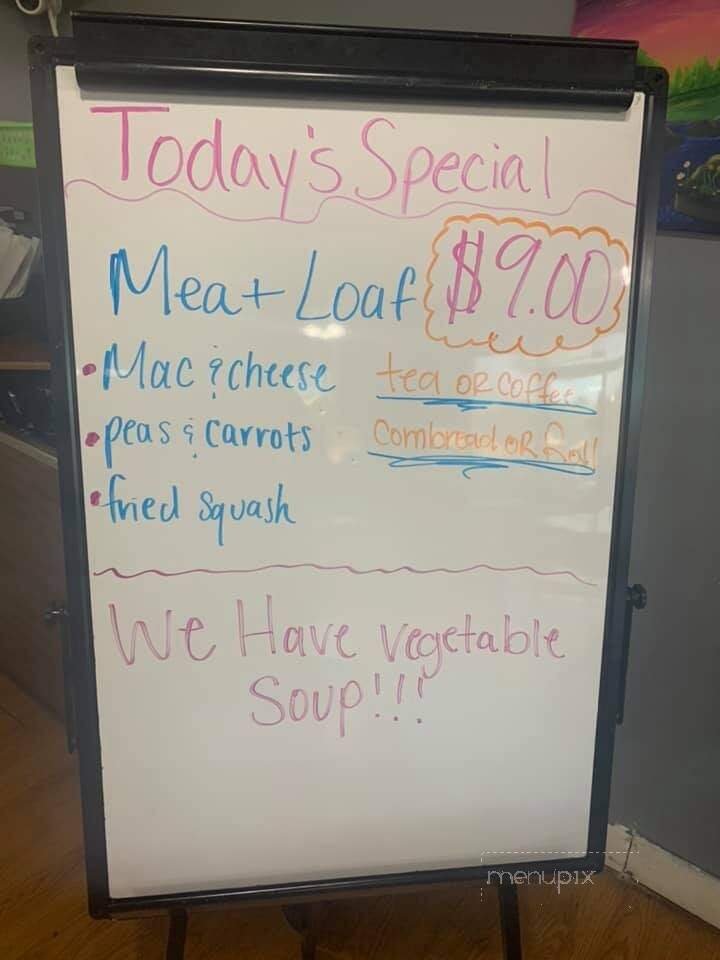 Today's Special
Meat Loaf $9.00
• Mac & cheese tea OR coffee
• peas & carrots cornbread OR Roll
• fried squash
We Have vegetable
Soup!!!
menupix